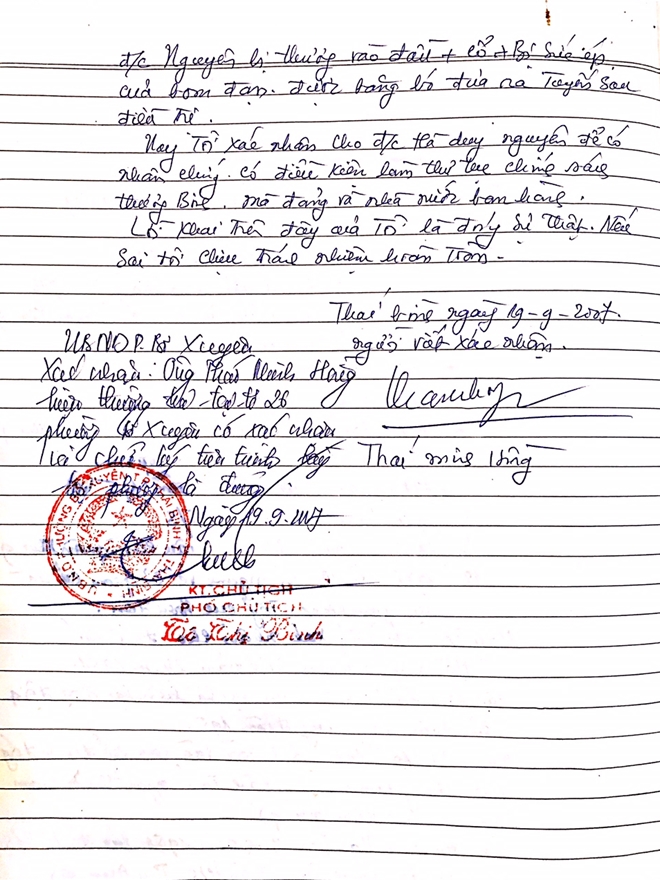 đ/c Nguyên bị thương vào đầu + cổ + Bị sức ép
của bom đạn. được băng bó đưa ra Tuyến sau
điều trị.
Nay Tôi xác nhận cho đ/c Hà duy nguyên để có
nhân chứng. có điều kiện làm thủ tục chính sách
thương Binh. mà đảng và nhà nước ban hành.
Lời khai Trên đây của Tôi là đúng sự thật. Nếu
Sai tôi chịu trách nhiệm hoàn Toàn.
Thái bình ngày 19-9-2007.
người viết xác nhận.
UBND P. Bồ Xuyên
Xác nhận: Ông Thái Minh Hồng
hiện thường trú tại tổ 26
phường Bồ Xuyên có xác nhận
là đúng
Thái minh Hồng
Ngày 19.9.2007
KT. CHỦ TỊCH
PHÓ CHỦ TỊCH
Tô Thị Bình